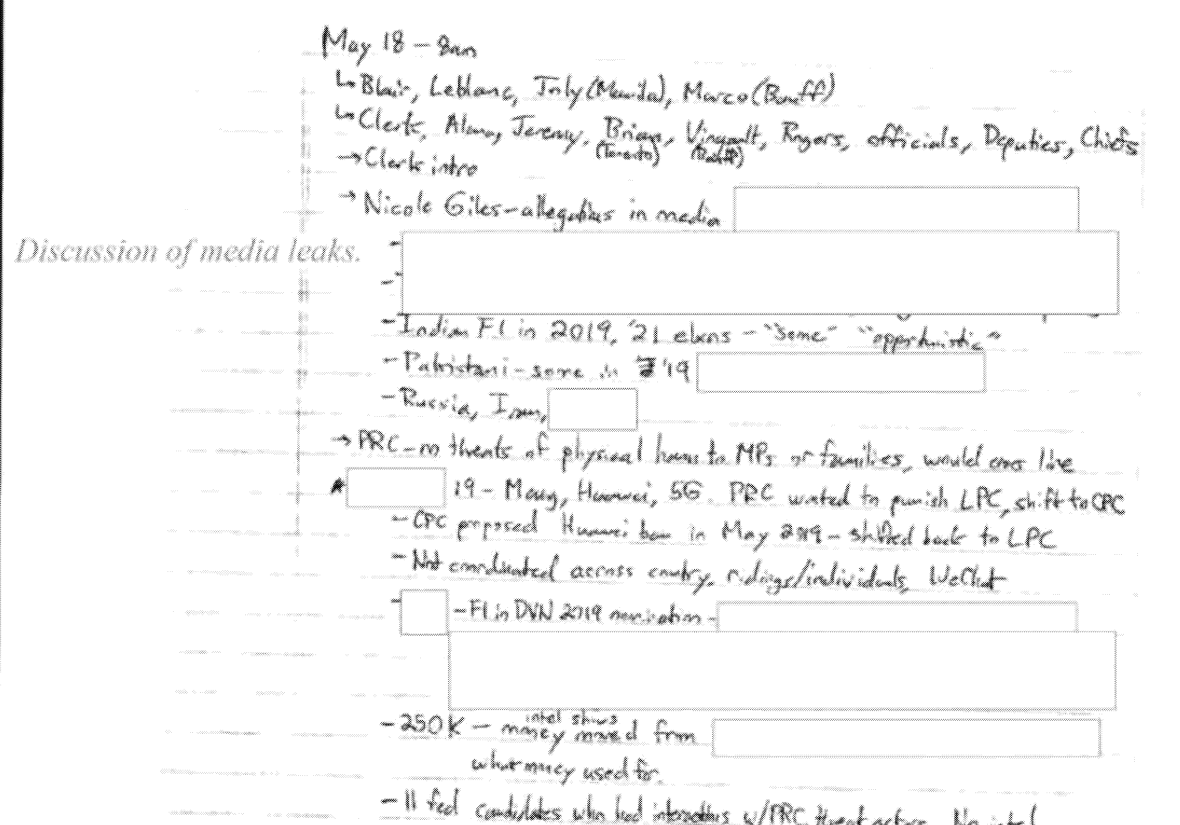 May 18 - 8am
↳ Blair, Leblanc, Joly (Manila), Marco (Banff)
↳ Clerk, Alana, Jeremy, Brian, Vigneault, Rogers, officials, Deputies, Chiefs
(Toronto) (Banff)
→ Clerk intro
→ Nicole Giles - allegations in media
Discussion of media leaks.
-
-
- Indian F.I. in 2019, '21 elxns - "some" "opportunistic"
- Pakistani - some in '19
- Russia, Iran,
→ PRC - no threats of physical harm to MPs or families, would cross line
19 - Meng, Huawei, 5G. PRC wanted to punish LPC, shift to CPC
- CPC proposed Huawei ban in May 2019 - shifted back to LPC
- Not coordinated across country, ridings/individuals, WeChat
- - FI in DVN 2019 nomination -
intel shows
- 250K - money moved from
what money used for.
- 11 fed candidates who had interactions w/PRC threat actors. No intel